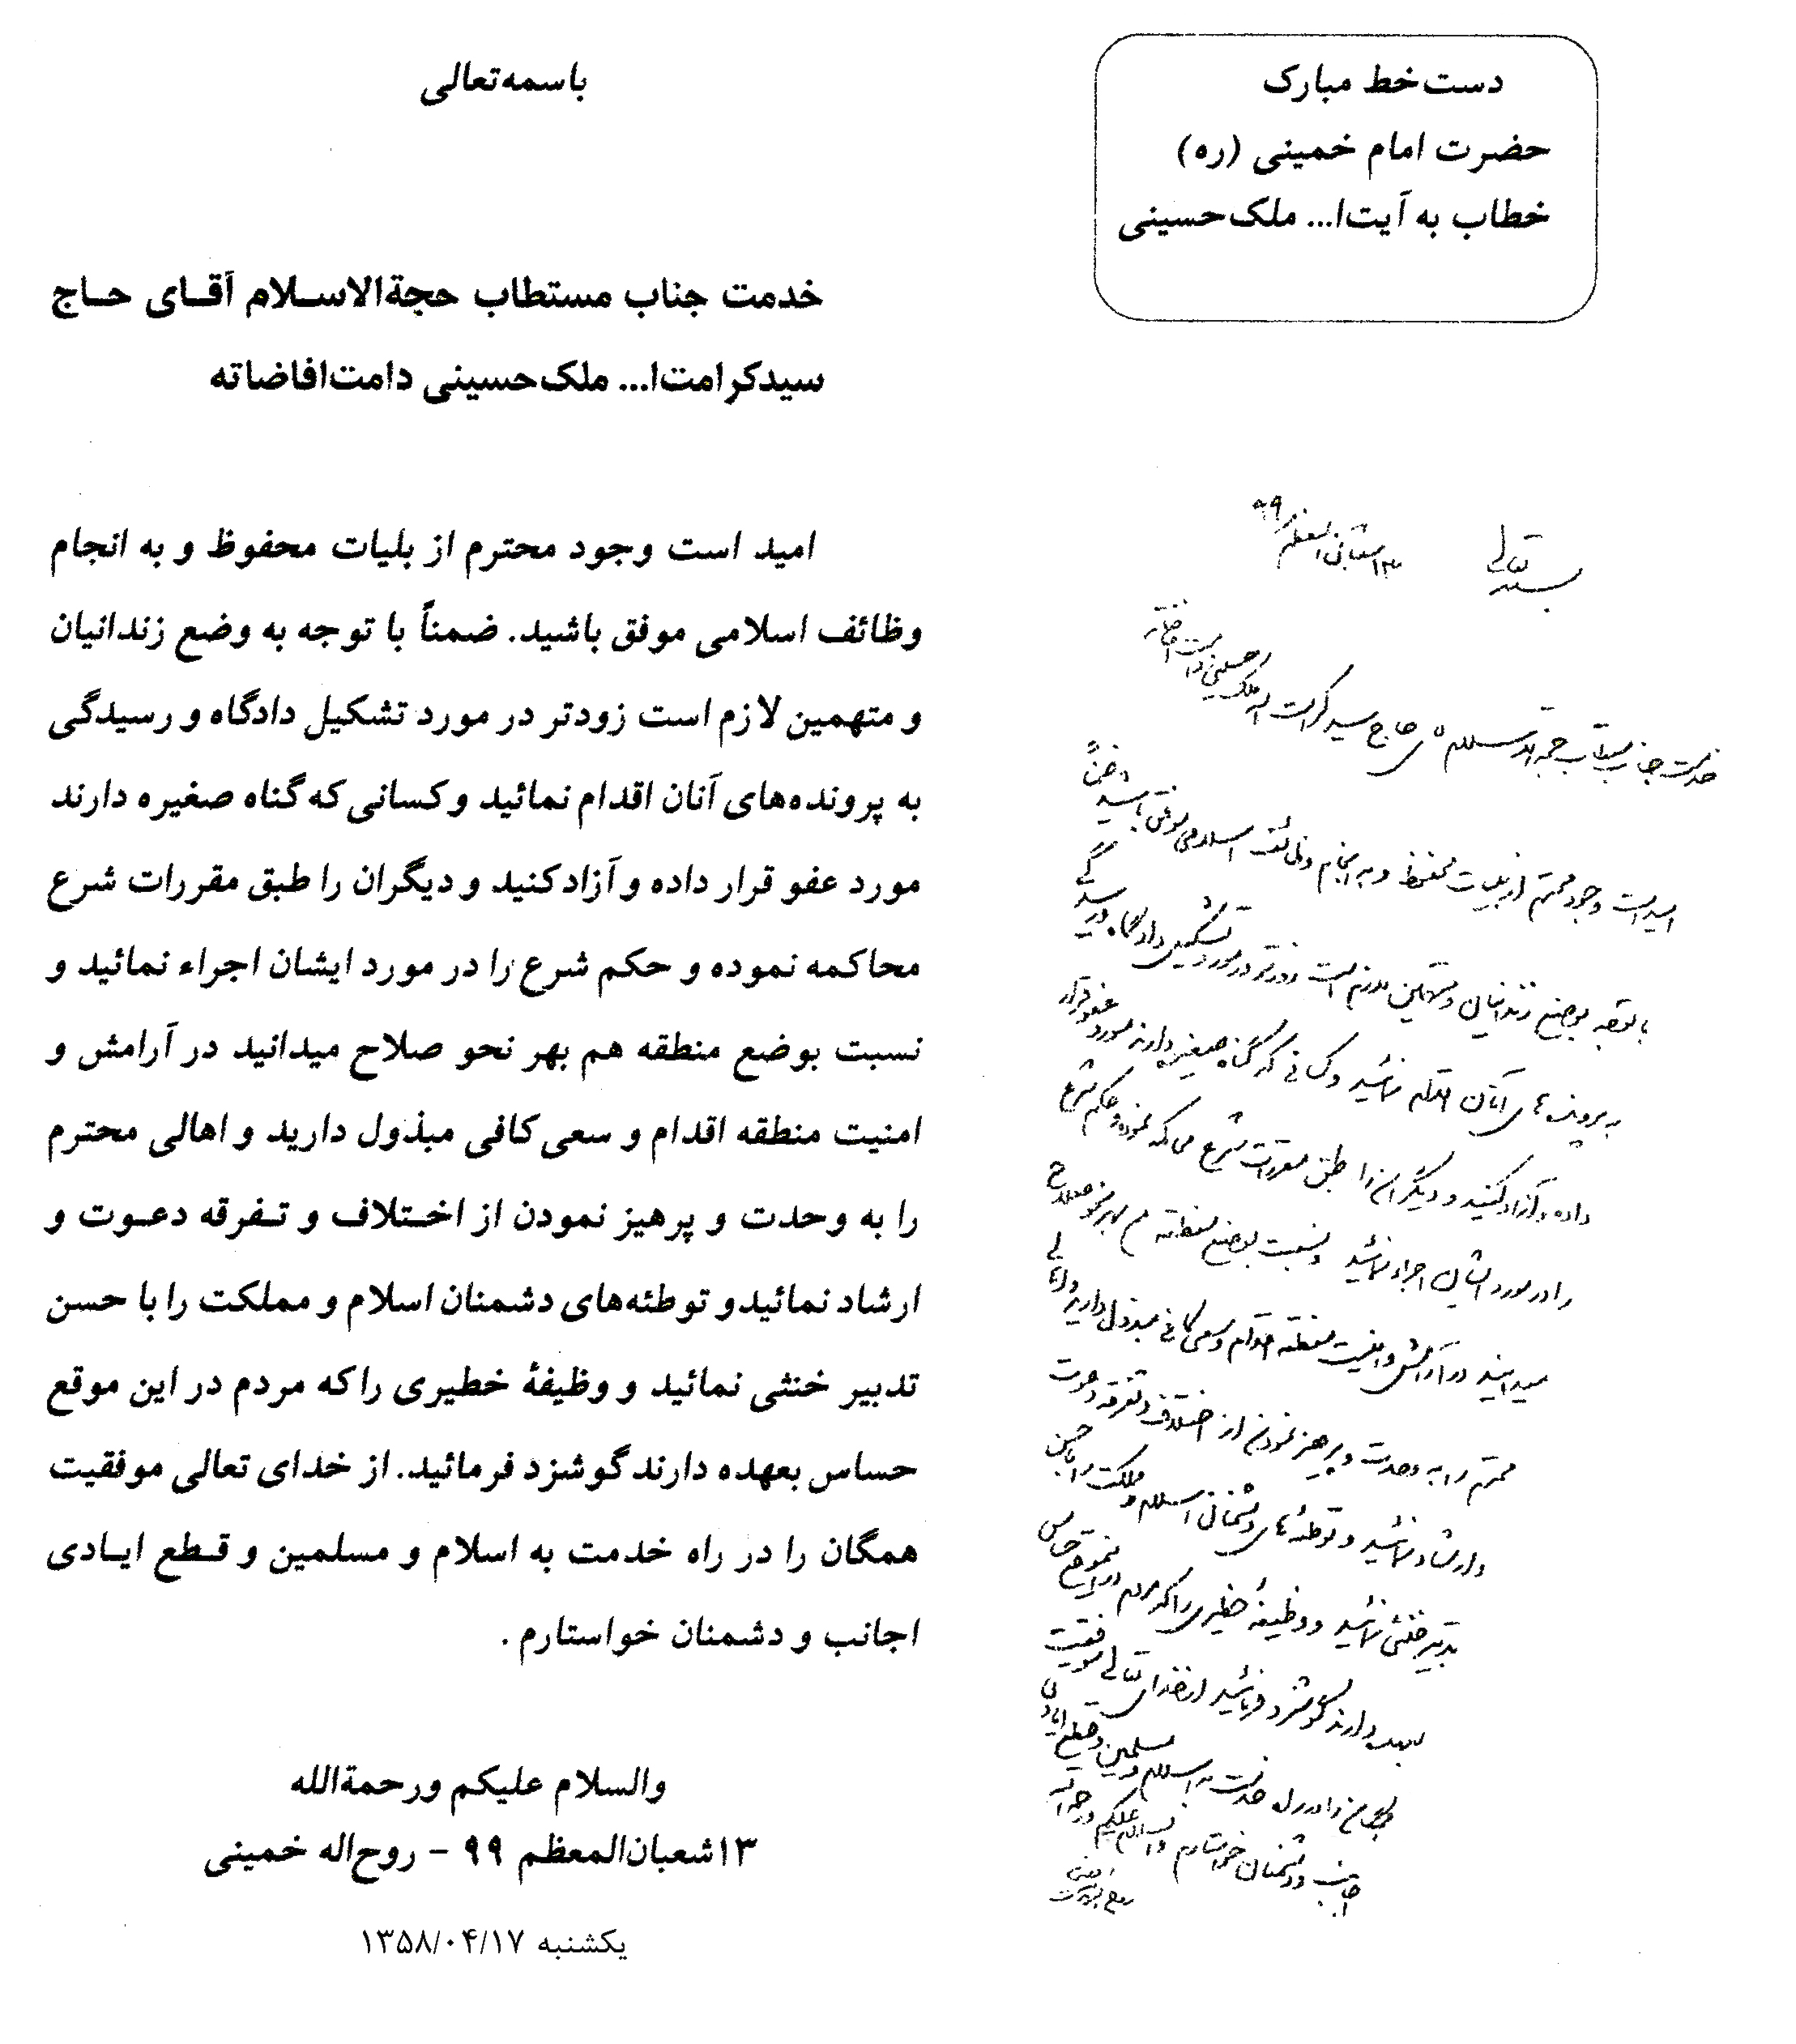 دست‌خط مبارک
حضرت امام خمینی (ره)
خطاب به آیت‌ا... ملک‌حسینی
باسمه‌تعالی
خدمت جناب مستطاب حجةالاسلام آقای حاج
سیدکرامت‌ا... ملک‌حسینی دامت‌افاضاته
امید است وجود محترم از بلیات محفوظ و به انجام
وظائف اسلامی موفق باشید. ضمناً با توجه به وضع زندانیان
و متهمین لازم است زودتر در مورد تشکیل دادگاه و رسیدگی
به پرونده‌های آنان اقدام نمائید و کسانی که گناه صغیره دارند
مورد عفو قرار داده و آزاد کنید و دیگران را طبق مقررات شرع
محاکمه نموده و حکم شرع را در مورد ایشان اجراء نمائید و
نسبت بوضع منطقه هم بهر نحو صلاح میدانید در آرامش و
امنیت منطقه اقدام و سعی کافی مبذول دارید و اهالی محترم
را به وحدت و پرهیز نمودن از اختلاف و تفرقه دعوت و
ارشاد نمائیدو توطئه‌های دشمنان اسلام و مملکت را با حسن
تدبیر خنثی نمائید و وظیفهٔ خطیری را که مردم در این موقع
حساس بعهده دارند گوشزد فرمائید. از خدای تعالی موفقیت
همگان را در راه خدمت به اسلام و مسلمین و قطع ایادی
اجانب و دشمنان خواستارم .
والسلام علیکم ورحمةالله
۱۳شعبان‌المعظم ۹۹ - روح‌اله خمینی
یکشنبه ۱۳۵۸/۰۴/۱۷
بسمه تعالی
۱۳ شعبان المعظم ۹۹
خدمت جناب مستطاب حجة الاسلام آقای حاج سید کرامت اله ملک حسینی دامت افاضاته
امید است وجود محترم از بلیات محفوظ و به انجام وظائف اسلامی موفق باشید ضمناً
با توجه بوضع زندانیان و متهمین لازم است زودتر در مورد تشکیل دادگاه و رسیدگی
به پرونده های آنان اقدام نمائید و کسانی که گناه صغیره دارند مورد عفو قرار
داده و آزاد کنید و دیگران را طبق مقررات شرع محاکمه نموده و حکم شرع
را در مورد ایشان اجراء نمائید و نسبت بوضع منطقه هم بهر نحو صلاح
میدانید در آرامش و امنیت منطقه اقدام و سعی کافی مبذول دارید و اهالی
محترم را به وحدت و پرهیز نمودن از اختلاف و تفرقه دعوت
و ارشاد نمائید و توطئه های دشمنان اسلام و مملکت را با حسن
تدبیر خنثی نمائید و وظیفهٔ خطیری را که مردم در اینموقع حساس
بعهده دارند گوشزد فرمائید از خدای تعالی موفقیت
همگان را در راه خدمت به اسلام و مسلمین و قطع ایادی
اجانب و دشمنان خواستارم والسلام علیکم ورحمة اله